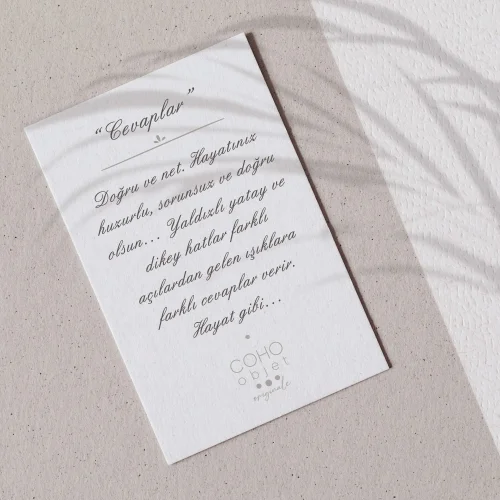 “Cevaplar”
Doğru ve net. Hayatınız
huzurlu, sorunsuz ve doğru
olsun... Yaldızlı yatay ve
dikey hatlar farklı
açılardan gelen ışıklara
farklı cevaplar verir.
Hayat gibi...
COHO
objet
originale